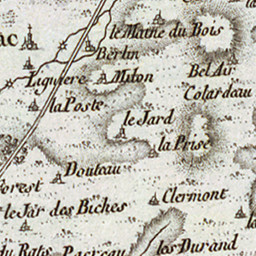 le Maine du Bois
AC
Berlin
Bel Air
Liguiere
Miton
Colardeau
la Poste
le Jard
la Prise
Douteau
Forest
Clermont
le Jar des Biches
du Rats
les Durand